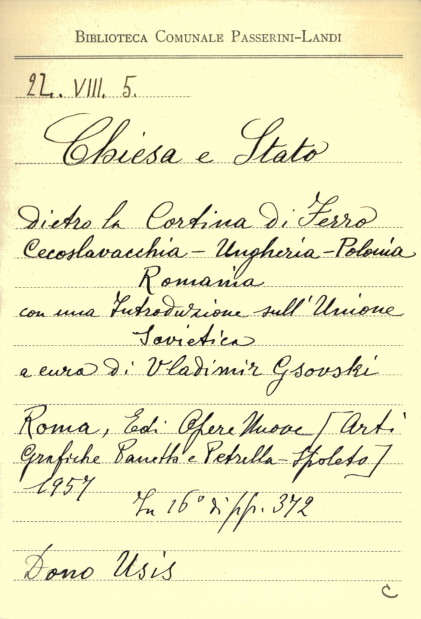 BIBLIOTECA COMUNALE PASSERINI-LANDI
22. VIII. 5.
Chiesa e Stato
dietro la Cortina di Ferro
Cecoslavacchia - Ungheria - Polonia
Romania
con una Introduzione sull'Unione
Sovietica
a cura di Vladimir Gsovski
Roma, Edi Opere Nuove [Arti
Grafiche Panetto e Petrella - Spoleto]
1957
In 16° di pp. 372
Dono Usis
C